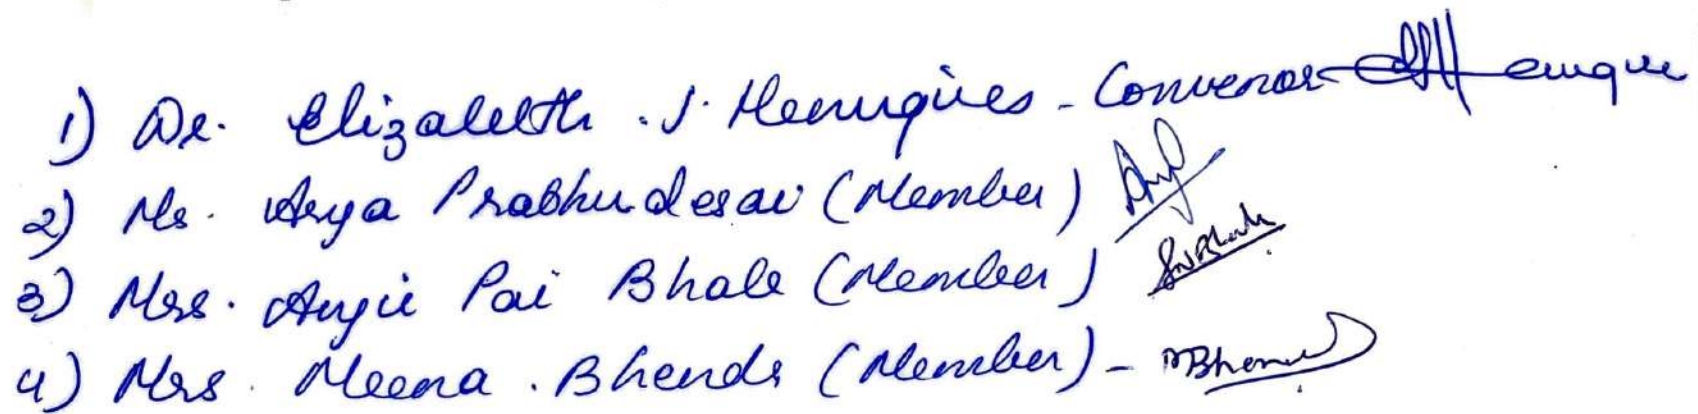 1) Dr. Elizabeth . J. Henriques - Convenor
2) Ms. Arya Prabhudesai (Member)
3) Mrs. Pai Bhale (Member)
4) Mrs. Meena . Bhende (Member) -